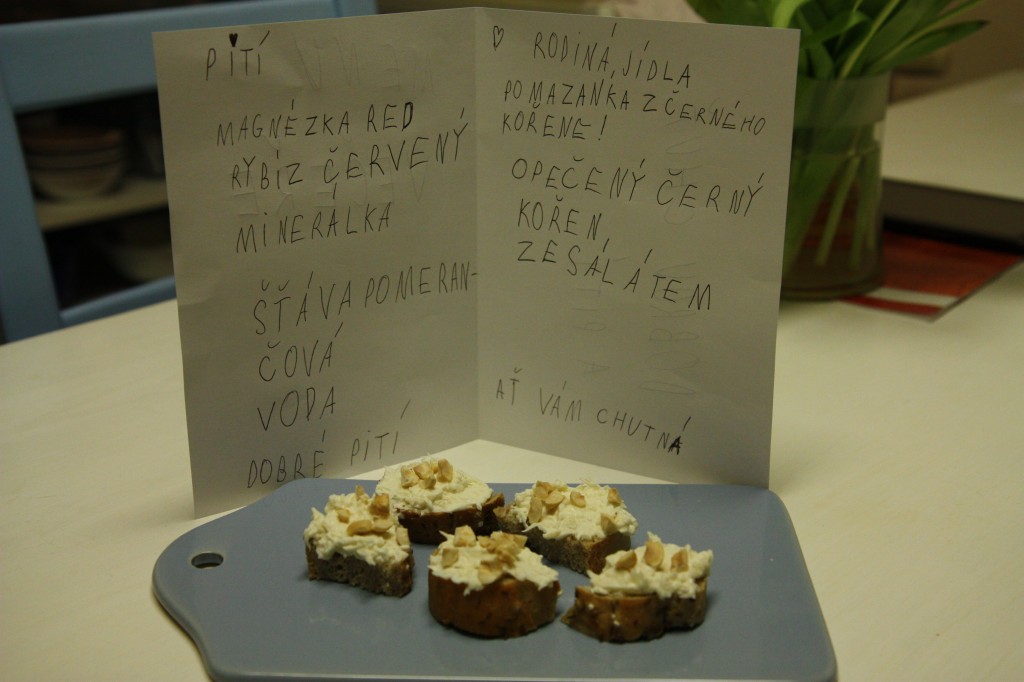 PITÍ
MAGNÉZKA RED
RYBIZ ČERVENÝ
MINERÁLKA
ŠŤÁVA POMERAN-
ČOVÁ
VODA
DOBRÉ PITÍ
RODINÁ JÍDLA
POMAZAŃKA Z ČERNÉHO
KOŘENE!
OPEČENÝ ČERNÝ
KOŘEN,
ZE SALÁTEM
AŤ VÁM CHUTNÁ